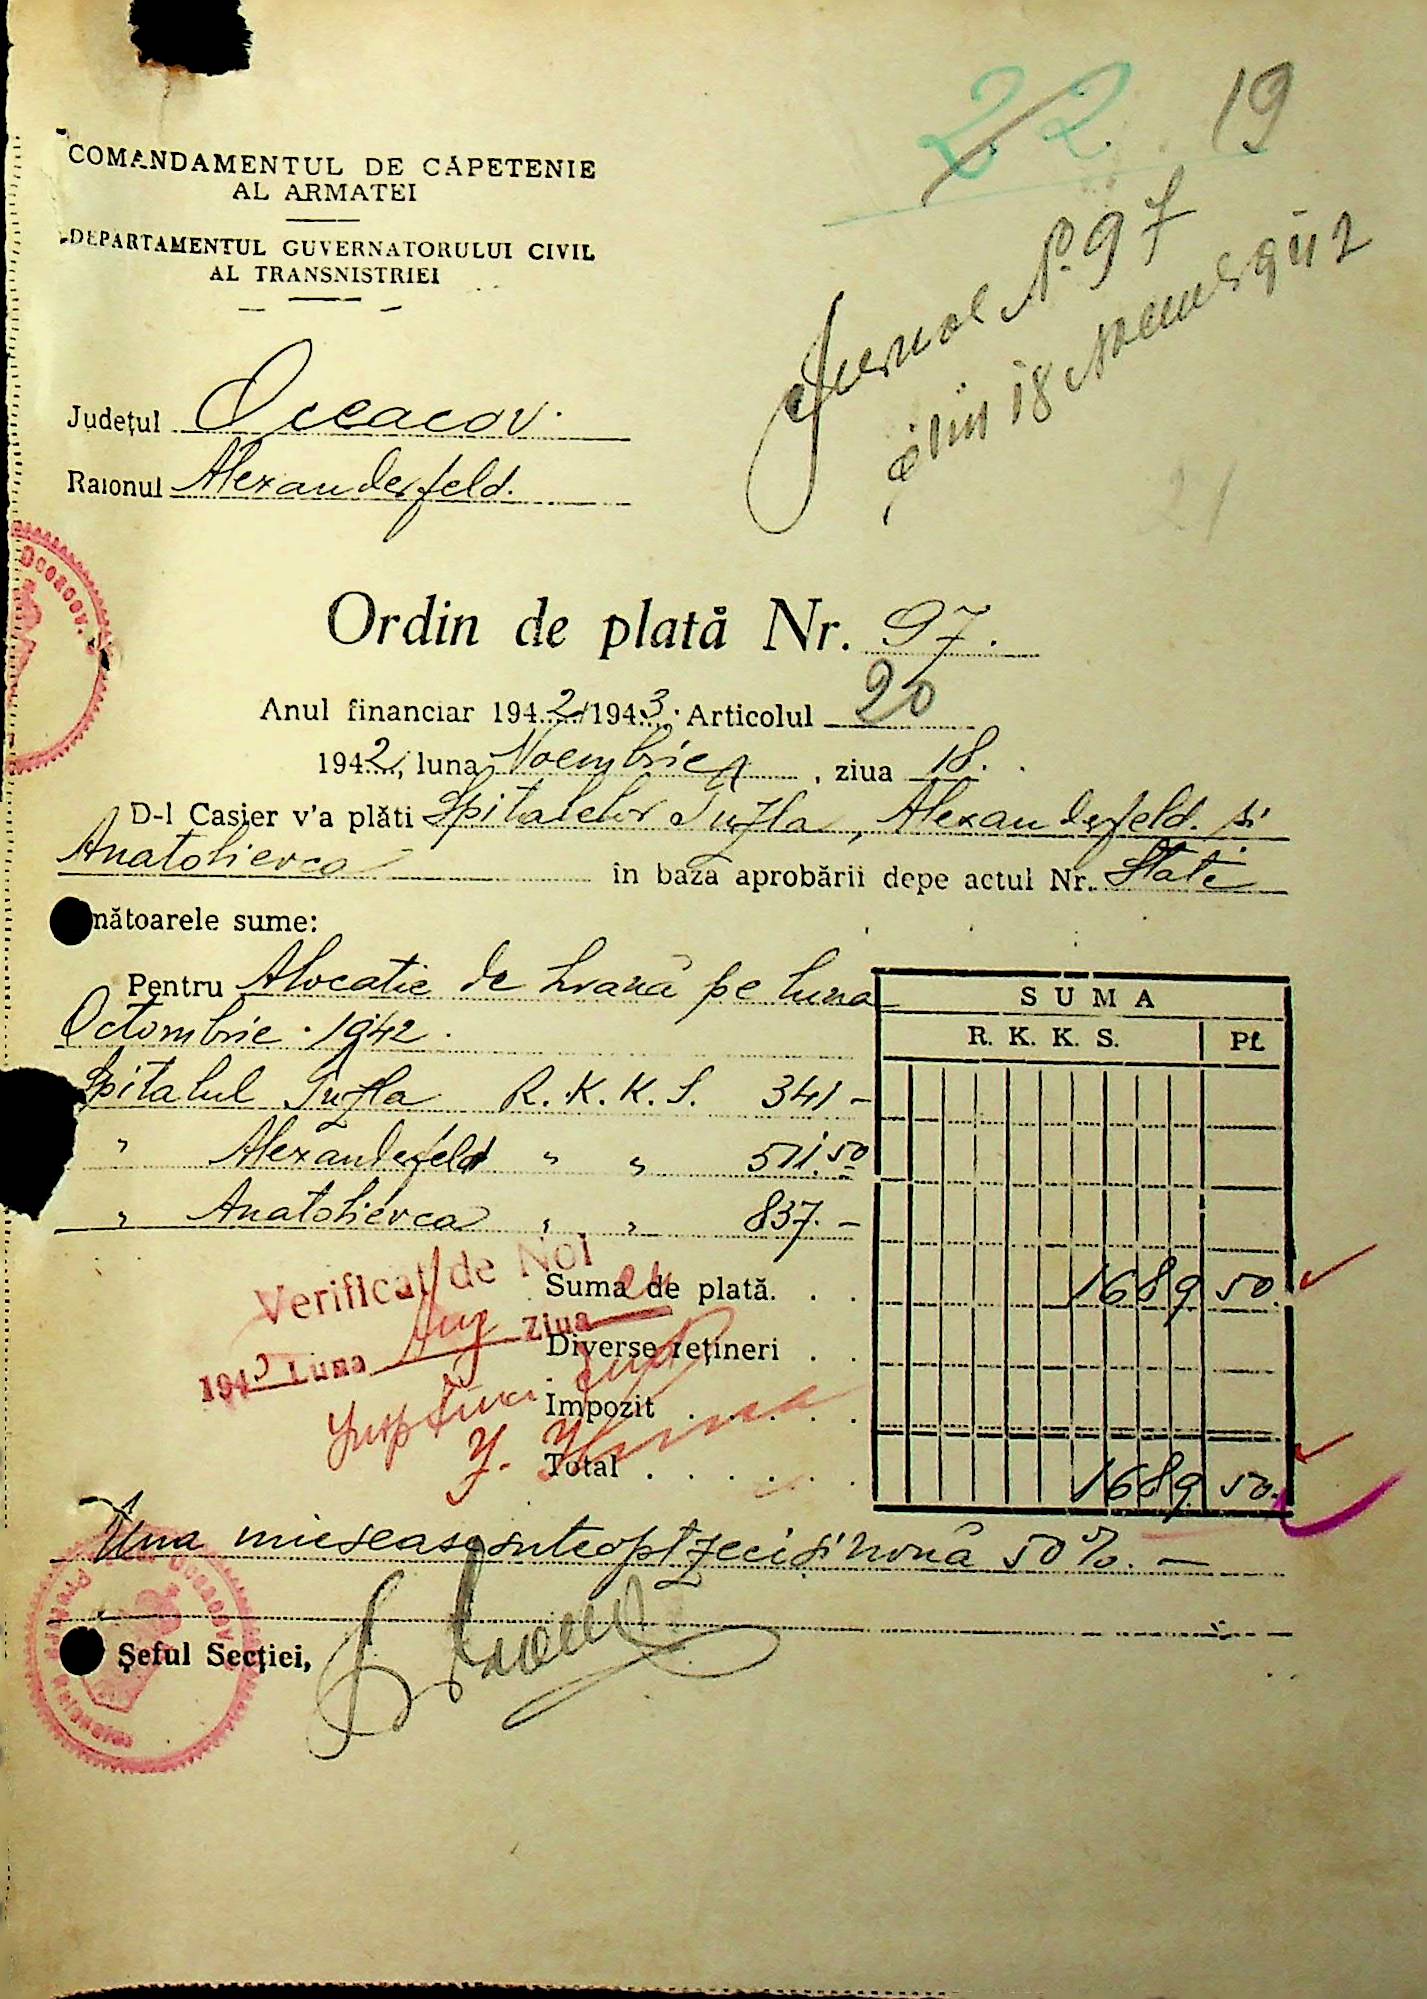 22. 19
COMANDAMENTUL DE CĂPETENIE
AL ARMATEI
DEPARTAMENTUL GUVERNATORULUI CIVIL
AL TRANSNISTRIEI
Jurnal N. 97
din 18 Noembr 942
Județul Oceacov.
Raionul Alexanderfeld.
21
Oceacov.
Ordin de plată Nr. 97.
Anul financiar 1942/1943. Articolul 20
1942, luna Noembrie, ziua 18.
D-l Casier v'a plăti Spitalelor Tuzla, Alexanderfeld. si
Anatolievca în baza aprobării depe actul Nr. State
mătoarele sume:
Pentru Alocatie de hrană pe luna
Octombrie. 1942.
SUMA
R. K. K. S. Pf.
Spitalul Tuzla R. K. K. S. 341 –
" Alexanderfeld " " 511.50
" Anatolievca " " 837. –
Verificat de Noi
Suma de plată. . . 1689 50.
194 Luna Aug Ziua
Diverse rețineri . .
Impozit . . . . . .
Total . . . . . . 1689 50.
Una mieseasesuteoptzecisinouă 50%. –
Șeful Secției,
Oceacov
Prefectura